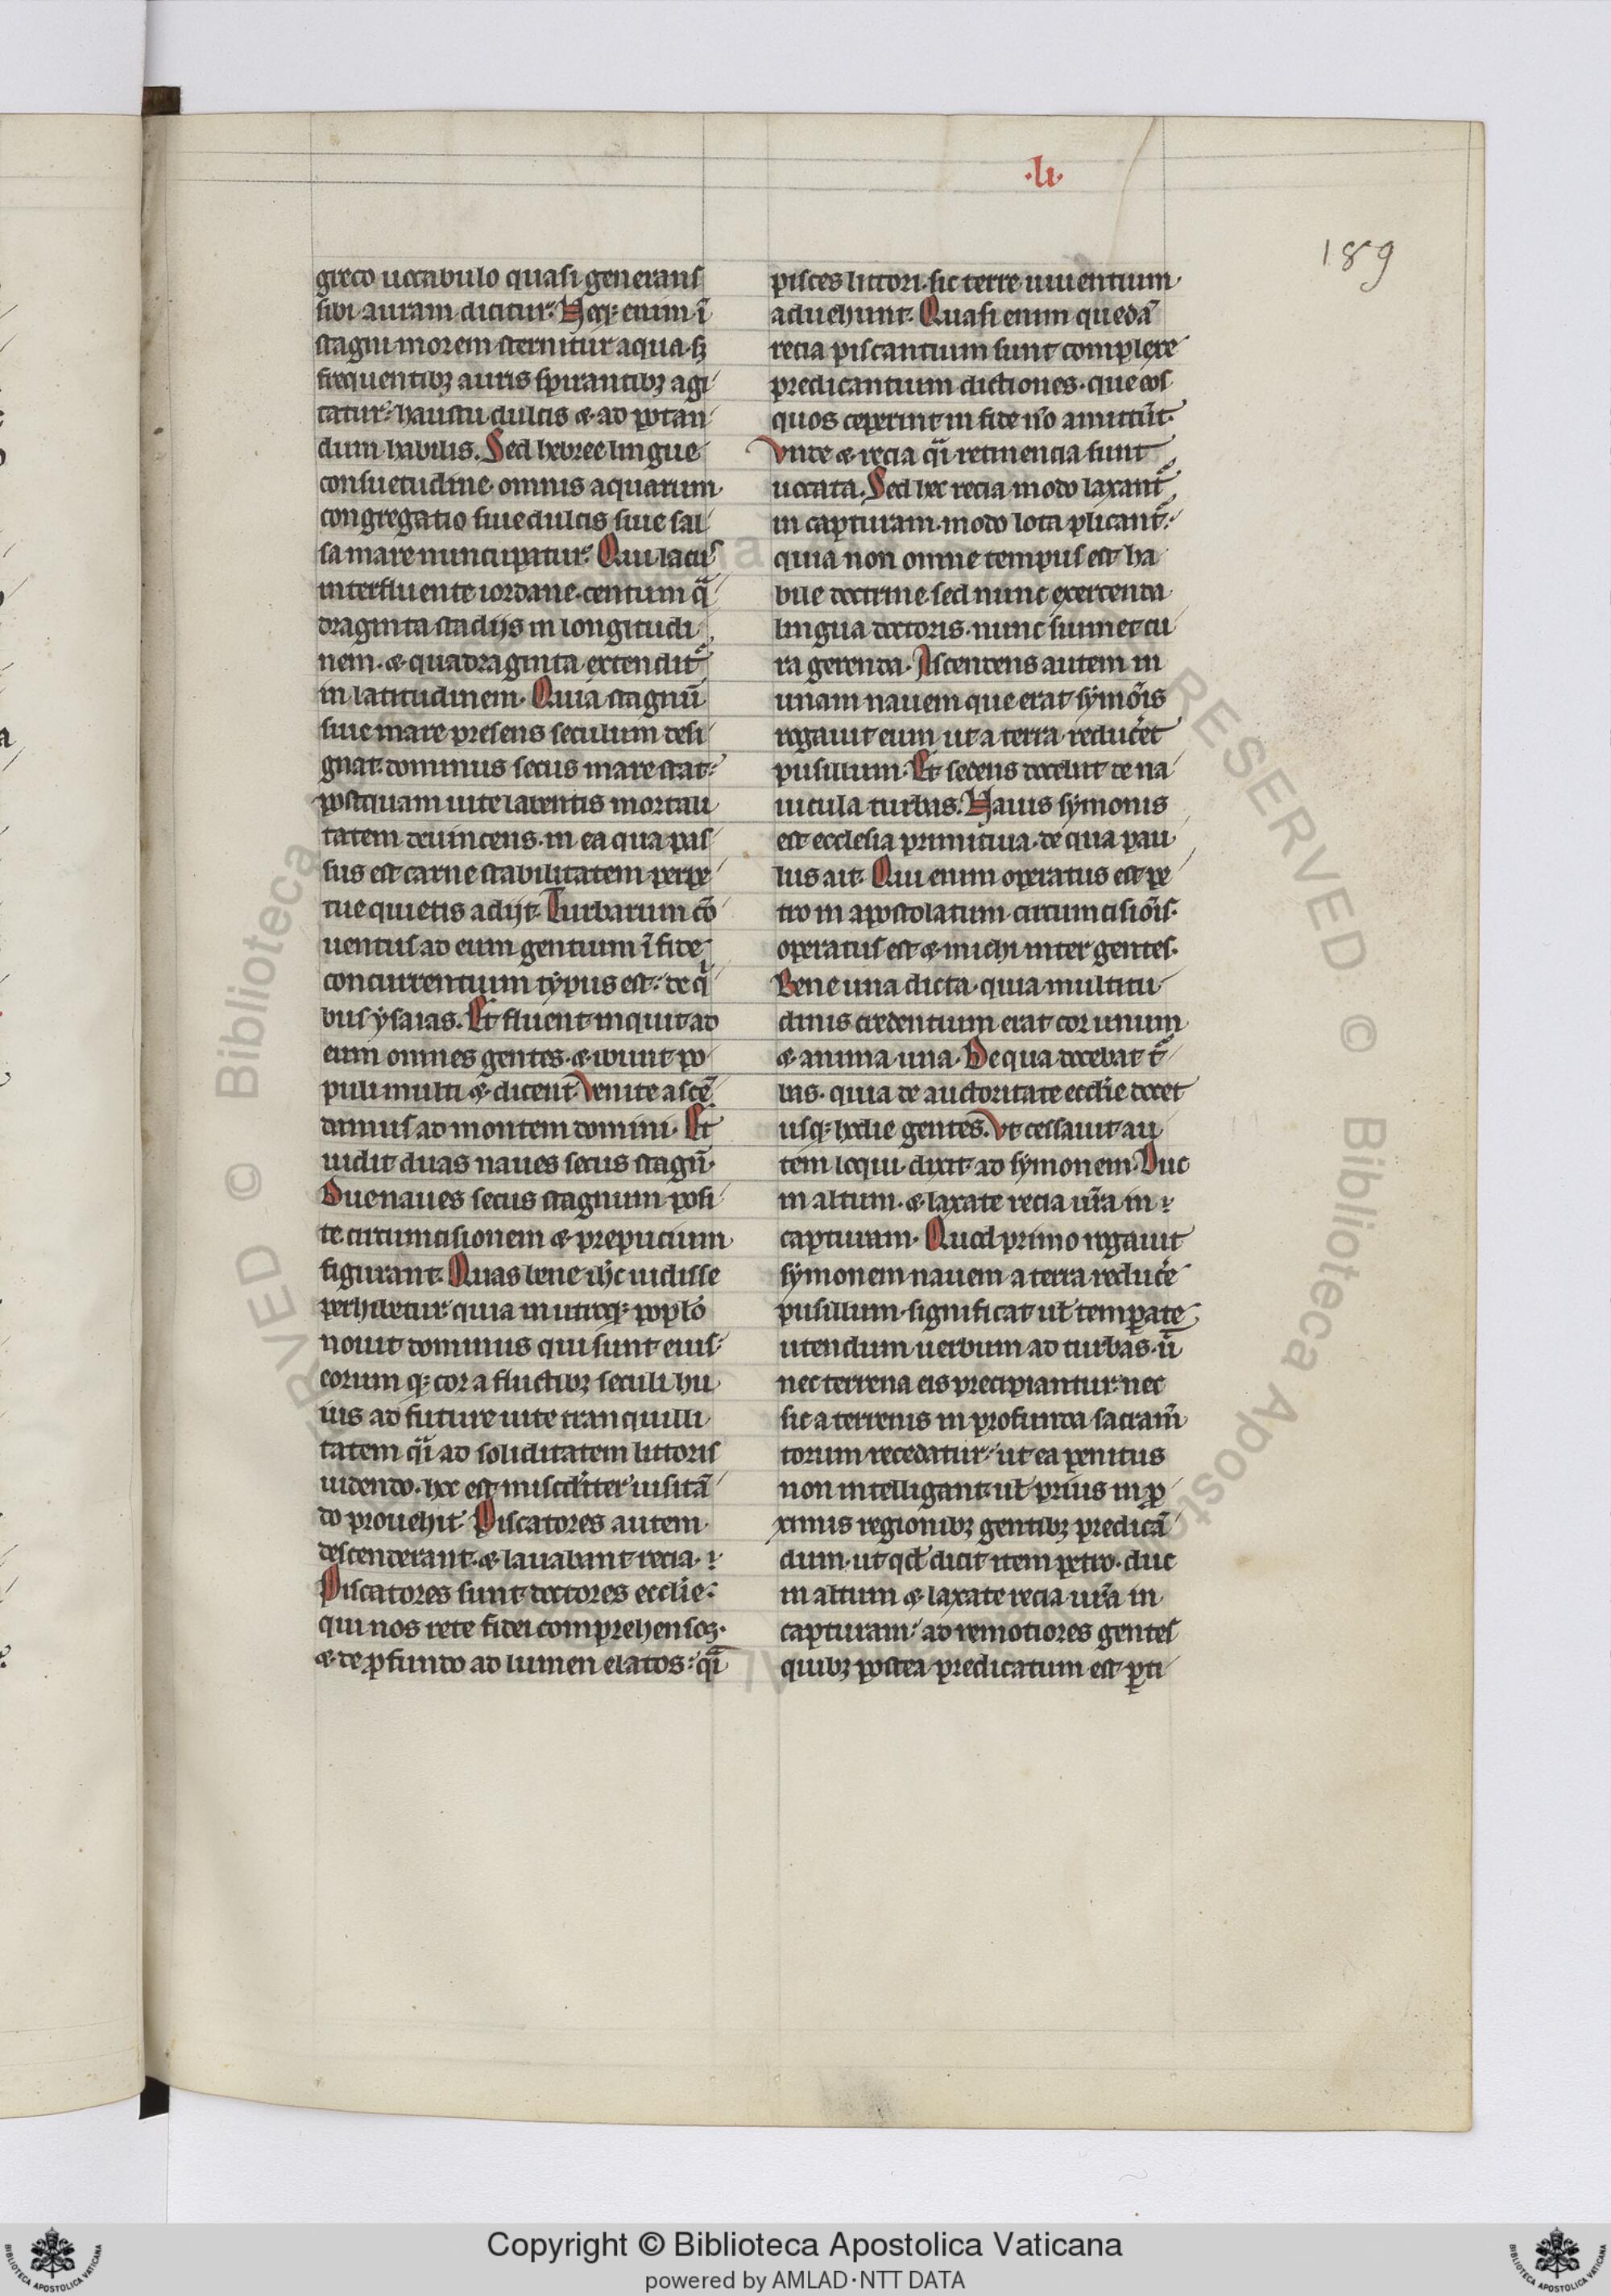 .li.
189
greco uocabulo quasi generans
sibi auram dicitur. Neq; enim ī
stagni morem sternitur aqua. sꝫ
frequentibꝫ auris spirantibꝫ agi
tatur. haustu dulcis ⁊ ad potan
dum habilis. Sed hebree lingue
consuetudine omnis aquarum
congregatio siue dulcis siue sal
sa mare nuncupatur. Qui lacus
interfluente iordane. centum q̄
draginta stadijs in longitudi
nem. ⁊ quadraginta extendit᷑
in latitudinem. Quia stagnū
siue mare presens seculum desi
gnat. dominus secus mare stat.
postquam uite labentis mortali
tatem deuincens. in ea qua pas
sus est carne stabilitatem perpe
tue quietis adijt. Turbarum cō
uentus ad eum gentium ī fide
concurrentium typus est. de qͥ
bus ysaias. Et fluent inquit ad
eum omnes gentes. ⁊ ibunt po
puli multi ⁊ dicent. Venite ascē
damus ad montem domini. Et
uidit duas naues secus stagnū.
Due naues secus stagnum posi
te circumcisionem ⁊ prepucium
figurant. Quas bene ihc̄ uidisse
perhibetur quia in utroq; poplō
nouit dominus qui sunt eius.
eorum q; cor a fluctibꝫ seculi hu
ius ad future uite tranquilli
tatem qͣi ad soliditatem littoris
uidendo. hoc est miscdīter uisitā
do prouehit. Piscatores autem
descenderant. ⁊ lauabant recia.
Piscatores sunt doctores ecclīe.
qui nos rete fidei comprehensos.
⁊ de ꝓfundo ad lumen elatos. qͣi
pisces littori. sic terre uiuentium
aduehunt. Quasi enim quedā
recia piscantium sunt complexe
predicantium dictiones. que eos
quos ceperint in fide nō amittūt.
Vnde ⁊ recia qͣi retinencia sunt
uocata. Sed hec recia modo laxant᷑
in capturam. modo lota plicant᷑.
quia non omne tempus est ha
bile doctrine. sed nunc exercenda
lingua doctoris. nunc sui met cu
ra gerenda. Ascendens autem in
unam nauem que erat symōis
rogauit eum ut a terra reducēt
pusillum. Et sedens docebat de na
uicula turbas. Nauis symonis
est ecclesia primitiua. de qua pau
lus ait. Qui enim operatus est pe
tro in apostolatum circumcisiōis.
operatus est ⁊ michi inter gentes.
Bene una dicta. quia multitu
dinis credentium erat cor unum
⁊ anima una. De qua docebat t᷑
bas. quia de auctoritate ecclīe docet
usq; hodie gentes. Vt cessauit au
tem loqui. dixit ad symonem. Duc
in altum. ⁊ laxate recia ur̄a in
capturam. Quod primo rogauit
symonem nauem a terra reducē
pusillum. significat ul̄ temperate
utendum uerbum ad turbas. ū
nec terrena eis precipiantur. nec
sic a terrenis in profunda sacram̄
torum recedatur. ut ea penitus
non intelligant. ul̄ prius in ꝓ
ximis regionibꝫ gentibꝫ predicā
dum. ut qd̄ dicit item petro. duc
in altum ⁊ laxate recia ur̄a in
capturam. ad remotiores gentes
quibꝫ postea predicatum est ꝑti
© Biblioteca Apostolica Vaticana
Copyright © Biblioteca Apostolica Vaticana
powered by AMLAD·NTT DATA